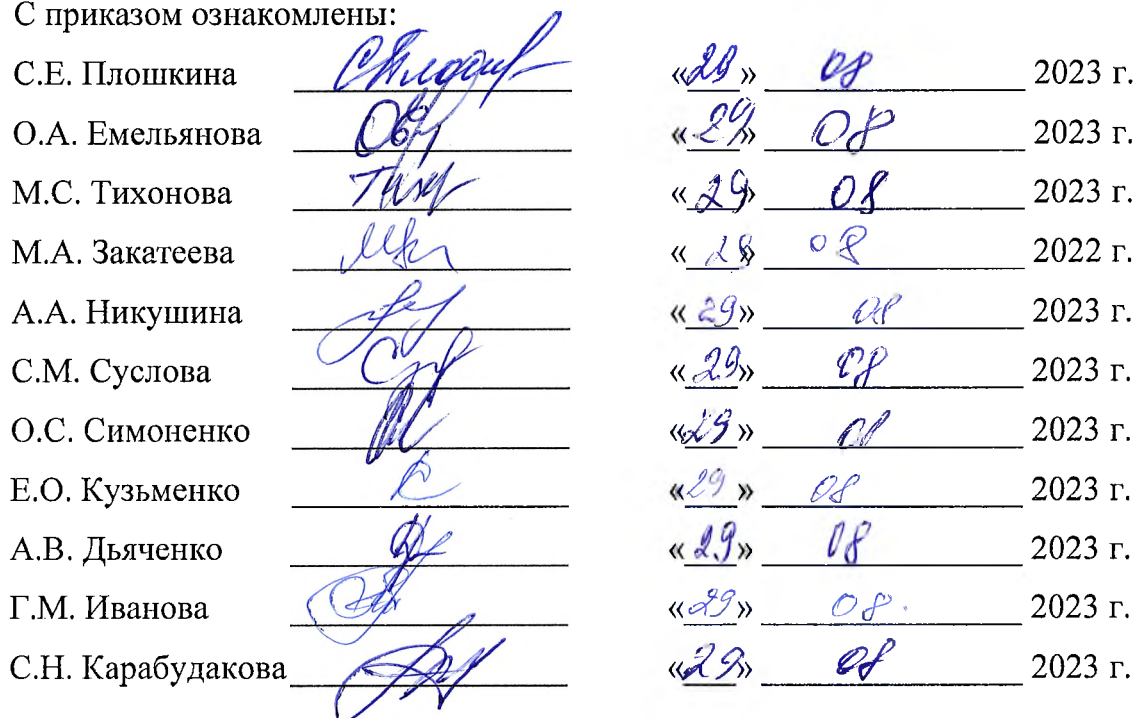 С приказом ознакомлены:
С.Е. Плошкина «29» 08 2023 г.
О.А. Емельянова «29» 08 2023 г.
М.С. Тихонова «29» 08 2023 г.
М.А. Закатеева «28» 08 2022 г.
А.А. Никушина «29» 08 2023 г.
С.М. Суслова «29» 08 2023 г.
О.С. Симоненко «29» 08 2023 г.
Е.О. Кузьменко «29» 08 2023 г.
А.В. Дьяченко «29» 08 2023 г.
Г.М. Иванова «29» 08. 2023 г.
С.Н. Карабудакова «29» 08 2023 г.